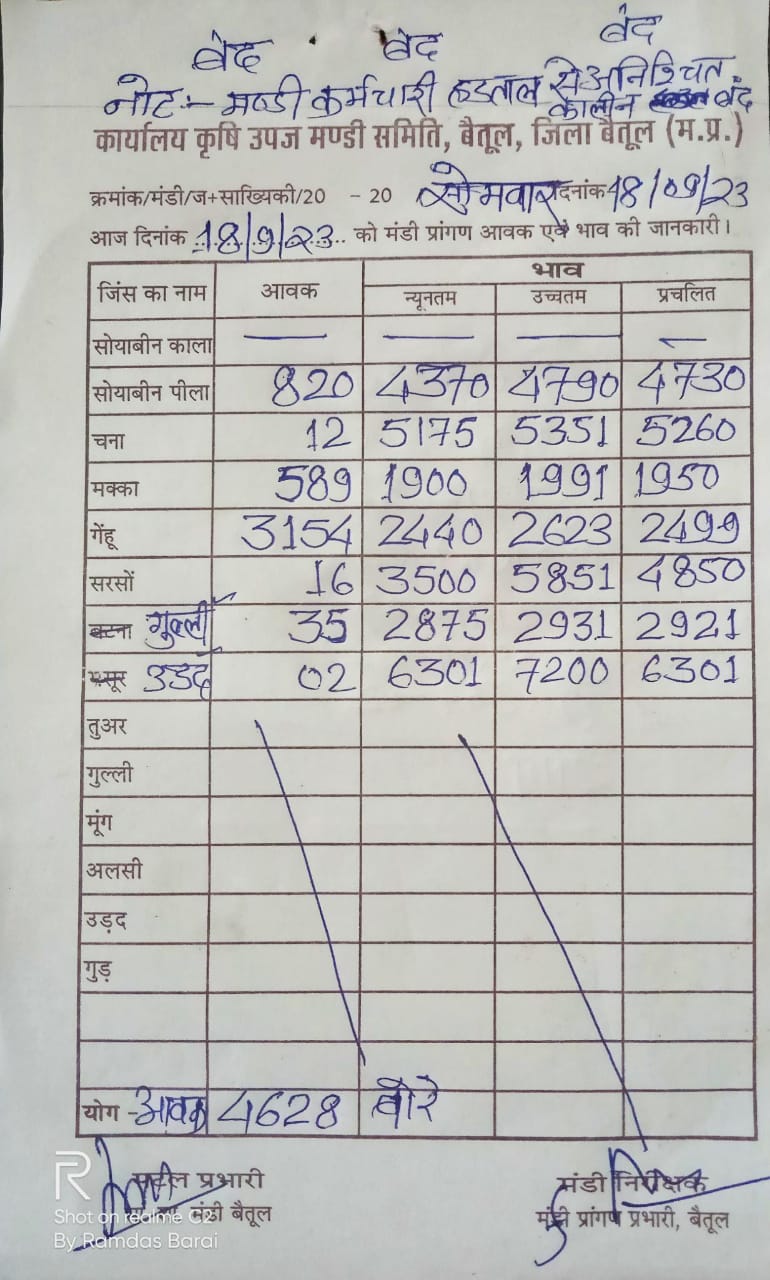 बंद बंद बंद
नोट:- मण्डी कर्मचारी हडताल से अनिश्चित
कालीन बंद
कार्यालय कृषि उपज मण्डी समिति, बैतूल, जिला बैतूल (म.प्र.)
क्रमांक/मंडी/ज+साख्यिकी/20 - 20 सोमवार दिनांक 18/09/23
आज दिनांक 18/9/23 को मंडी प्रांगण आवक एवं भाव की जानकारी।
जिंस का नाम आवक भाव
न्यूनतम उच्चतम प्रचलित
सोयाबीन काला — — —  —
सोयाबीन पीला 820 4370 4790 4730
चना 12 5175 5351 5260
मक्का 589 1900 1991 1950
गेंहू 3154 2440 2623 2499
सरसों 16 3500 5851 4850
बटना गुल्ली 35 2875 2931 2921
मसूर उडद 02 6301 7200 6301
तुअर
गुल्ली
मूंग
अलसी
उड़द
गुड़
योग - आवक 4628 बोरे
प्रभारी मंडी निरीक्षक
मंडी बैतूल मंडी प्रांगण प्रभारी, बैतूल
R
Shot on realme C2
By Ramdas Barai